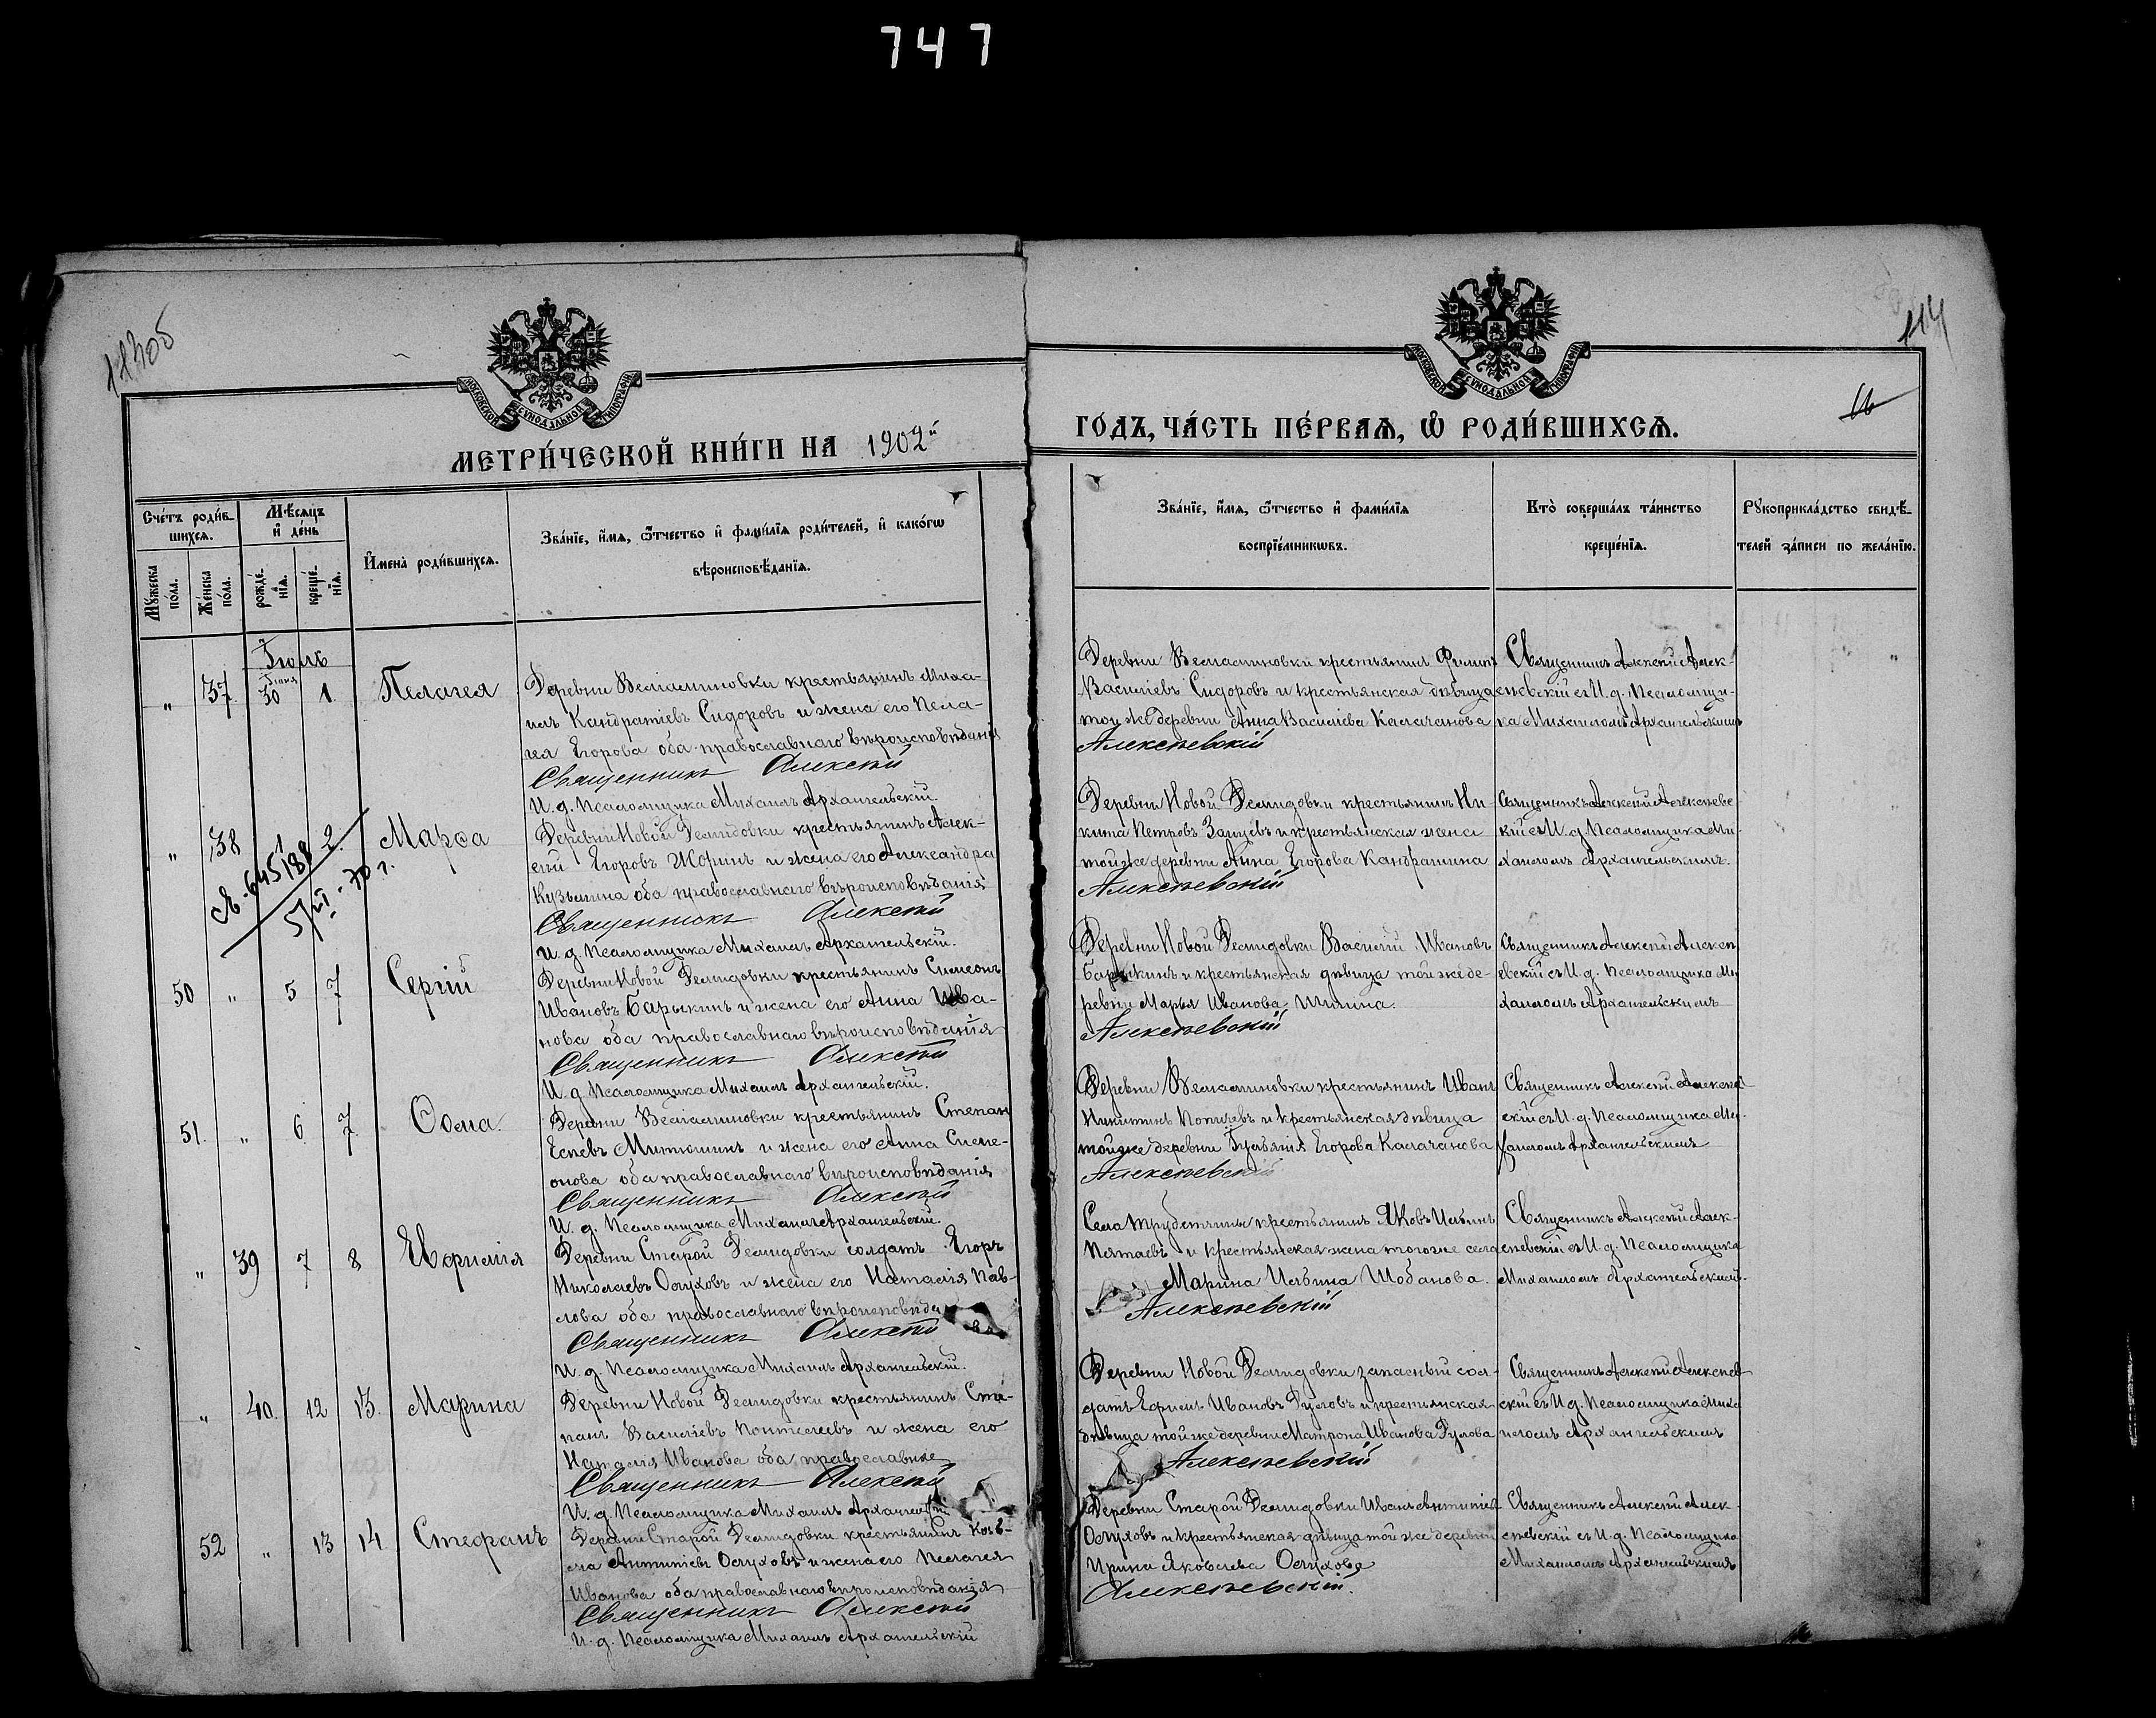 747
11305
114
МОСКОВСКОЙ СѴНОДАЛЬНОЙ ТИПОГРАФІИ
МОСКОВСКОЙ СѴНОДАЛЬНОЙ ТИПОГРАФІИ
МЕТРИ́ЧЕСКОЙ КНИ́ГИ НА 1902й
ГО́ДЪ, ЧА́СТЬ ПЕ́РВАѦ, Ѡ҆ РОДИ́ВШИХСѦ.
Сче́тъ роди́в-
шихсѧ.
Мꙋ́жеска
по́ла.
Же́нска
по́ла.
Мѣ́сѧцъ
и҆ де́нь
рожде́-
нїѧ.
креще́-
нїѧ.
И҆мена̀ роди́вшихсѧ.
Зва́нїе, и҆́мѧ, ѻ҆́тчество и҆ фами́лїѧ роди́телей, и҆ како́гѡ
вѣроисповѣ́данїѧ.
Зва́нїе, и҆́мѧ, ѻ҆́тчество и҆ фами́лїѧ
воспрїе́мникѡвъ.
Кто̀ соверша́лъ та́инство
креще́нїѧ.
Рꙋкоприкла́дство свидѣ́-
телей за́писи по жела́нїю.
Іюль
Іюня
" 37. 30 1. Пелагея
Деревни Веліаминовки крестьянинъ Миха-
илъ Кандратіевъ Сидоровъ и жена его Пела-
гея Егорова оба православнаго вѣроисповѣданія
Священникъ Алексѣй
И. д. Псаломщика Михаилъ Архангельскій.
Деревни Веліаминовки крестьянинъ Филипъ
Василіевъ Сидоровъ и крестьянская дѣвица
той же деревни Анна Василіева Калачанова
Алексѣевскій
Священникъ Алексѣй Алек-
сѣевскій съ И. д. Псаломщи-
ка Михаиломъ Архангельскимъ
" 38 1 2. Марѳа
св. 645188
5/VI - 70 г.
Деревни Новой Демидовки крестьянинъ Алек-
сѣй Егоровъ Жоринъ и жена его Александра
Кузьмина оба православнаго вѣроисповѣданія
Священникъ Алексѣй
И. д. Псаломщика Михаилъ Архангельскій.
Деревни Новой Демидовки крестьянинъ Ни-
кита Петровъ Зайцевъ и крестьянская жена
той же деревни Анна Егорова Кандрашина
Алексѣевскій
Священникъ Алексѣй Алексѣевс
кій съ И. д. Псаломщика Ми-
хаиломъ Архангельскимъ.
50 " 5 7 Сергій
Деревни Новой Демидовки крестьянинъ Симеонъ
Ивановъ Барыкинъ и жена его Анна Ива-
нова оба православнаго вѣроисповѣданія
Священникъ Алексѣй
И. д. Псаломщика Михаилъ Архангельскій.
Деревни Новой Демидовки Василій Ивановъ
Барыкинъ и крестьянская дѣвица той же де-
ревни Марья Иванова Шишина.
Алексѣевскій
Священникъ Алексѣй Алексѣ
евскій съ И. д. Псаломщика Ми
хаиломъ Архангельскимъ
51. " 6 7 Ѳома.
Деревни Веліаминовки крестьянинъ Степан
Митюшинъ и жена его Анна Симе-
онова оба православнаго вѣроисповѣданія
Священникъ Алексѣй
И. д. Псаломщика Михаилъ Архангельскій.
Деревни Веліаминовки крестьянинъ Иванъ
Никитинъ и крестьянская дѣвица
той же деревни Іуліанія Егорова Калачанова
Алексѣевскій
Священникъ Алексѣй Алексѣев-
скій съ И. д. Псаломщика Ми-
хаиломъ Архангельскимъ
" 39 7 8 Евфимія
Деревни Старой Демидовки солдатъ Егоръ
Николаевъ Обуховъ и жена его Наталія Пав-
лова оба православнаго вѣроисповѣда
Священникъ Алексѣй
И. д. Псаломщика Михаилъ Архангельскій.
Села Трубетчины крестьянинъ Яковъ Ильинъ
Пятаевъ и крестьянская жена того же села
Марина Ильина Шобанова.
Алексѣевскій
Священникъ Алексѣй Алек-
сѣевскій съ И. д. Псаломщика
Михаиломъ Архангельскимъ.
" 40. 12 13. Марина
Деревни Новой Демидовки крестьянинъ Сте-
панъ Василіевъ Понтелеевъ и жена его
Наталія Иванова оба православные
Священникъ Алексѣй
И. д. Псаломщика Михаилъ Архангельскій
Деревни Новой Демидовки запасный сол-
датъ Ефимъ Ивановъ Гусловъ и крестьянская
дѣвица той же деревни Матрона Иванова Гуслова
Алексѣевскій
Священникъ Алексѣй Алексѣев-
скій съ И. д. Псаломщика Миха
иломъ Архангельскимъ
52 " 13 14 Стефанъ
Деревни Старой Демидовки крестьянинъ Козь-
ма Антипіевъ Обуховъ и жена его Пелагея
Иванова оба православнаго вѣроисповѣданія
Священникъ Алексѣй
И. д. Псаломщика Михаилъ Архангельскій
Деревни Старой Демидовки Иванъ Антипіевъ
Обуховъ и крестьянская дѣвица той же деревни
Ирина Яковлева Обухова
Алексѣевскій.
Священникъ Алексѣй Алек-
сѣевскій съ И. д. Псаломщика
Михаиломъ Архангельскимъ